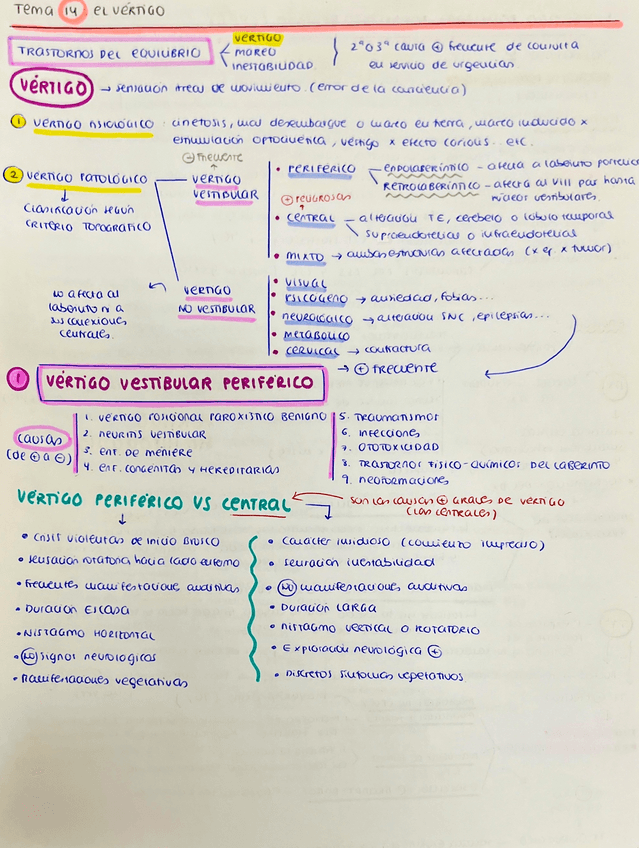 Tema 14. EL VÉRTIGO
TRASTORNOS DEL EQUILIBRIO
VÉRTIGO
MAREO
INESTABILIDAD.
2ª o 3ª causa ⊕ frecuente de consulta
en servicio de urgencias
VÉRTIGO → sensación irreal de movimiento. (error de la conciencia)
① VÉRTIGO FISIOLÓGICO: cinetosis, mal desembarque o mareo en tierra, mareo inducido x
estimulación optocinética, vértigo x efecto coriolis... etc.
② VÉRTIGO PATOLÓGICO
↓
Clasificación según
CRITERIO TOPOGRÁFICO
⊖ frecuente
↑
VERTIGO
VESTIBULAR
• PERIFÉRICO
ENDOLABERÍNTICO - afecta a laberinto posterior
RETROLABERÍNTICO - afecta al VIII par hasta
núcleos vestibulares.
⊕ PELIGROSAS
↑
• CENTRAL - alteración TE, cerebelo o lóbulo temporal
supratentoriales o infratentoriales
• MIXTO → ambas estructuras afectadas (x ej. x tumor)
NO afecta al
laberinto ni a
sus conexiones
centrales.
VÉRTIGO
NO VESTIBULAR
• VISUAL
• PSICÓGENO → ansiedad, fobias...
• NEUROLÓGICO → alteración SNC, epilepsias...
• METABÓLICO
• CERVICAL → contractura
→ ⊕ frecuente
① VÉRTIGO VESTIBULAR PERIFÉRICO
CAUSAS
(DE ⊕ A ⊖)
1. VÉRTIGO POSICIONAL PAROXÍSTICO BENIGNO
2. NEURITIS VESTIBULAR
3. ENF. DE MÉNIÈRE
4. ENF. CONGENITAS Y HEREDITARIAS
5. TRAUMATISMOS
6. INFECCIONES
7. OTOTOXICIDAD
8. TRASTORNOS FÍSICO-QUÍMICOS DEL LABERINTO
9. NEOFORMACIONES
VÉRTIGO PERIFÉRICO VS CENTRAL
SON LAS CAUSAS ⊕ GRAVES DE VÉRTIGO
(LAS CENTRALES)
• Crisis violentas de inicio BRUSCO
• Sensación rotatoria hacia lado enfermo
• Frecuentes manifestaciones auditivas
• DURACIÓN ESCASA
• NISTAGMO HORIZONTAL
• NO signos neurológicos
• Manifestaciones vegetativas
• Carácter insidioso (comienzo impreciso)
• Sensación inestabilidad
• NO manifestaciones auditivas
• DURACIÓN LARGA
• NISTAGMO VERTICAL O ROTATORIO
• Exploración neurológica ⊕
• Discretos síntomas vegetativos.